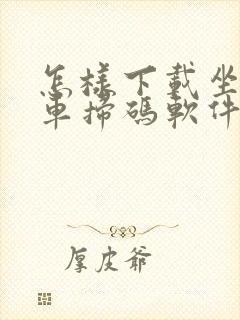 怎樣下載坐
車掃碼軟件
厚皮爺